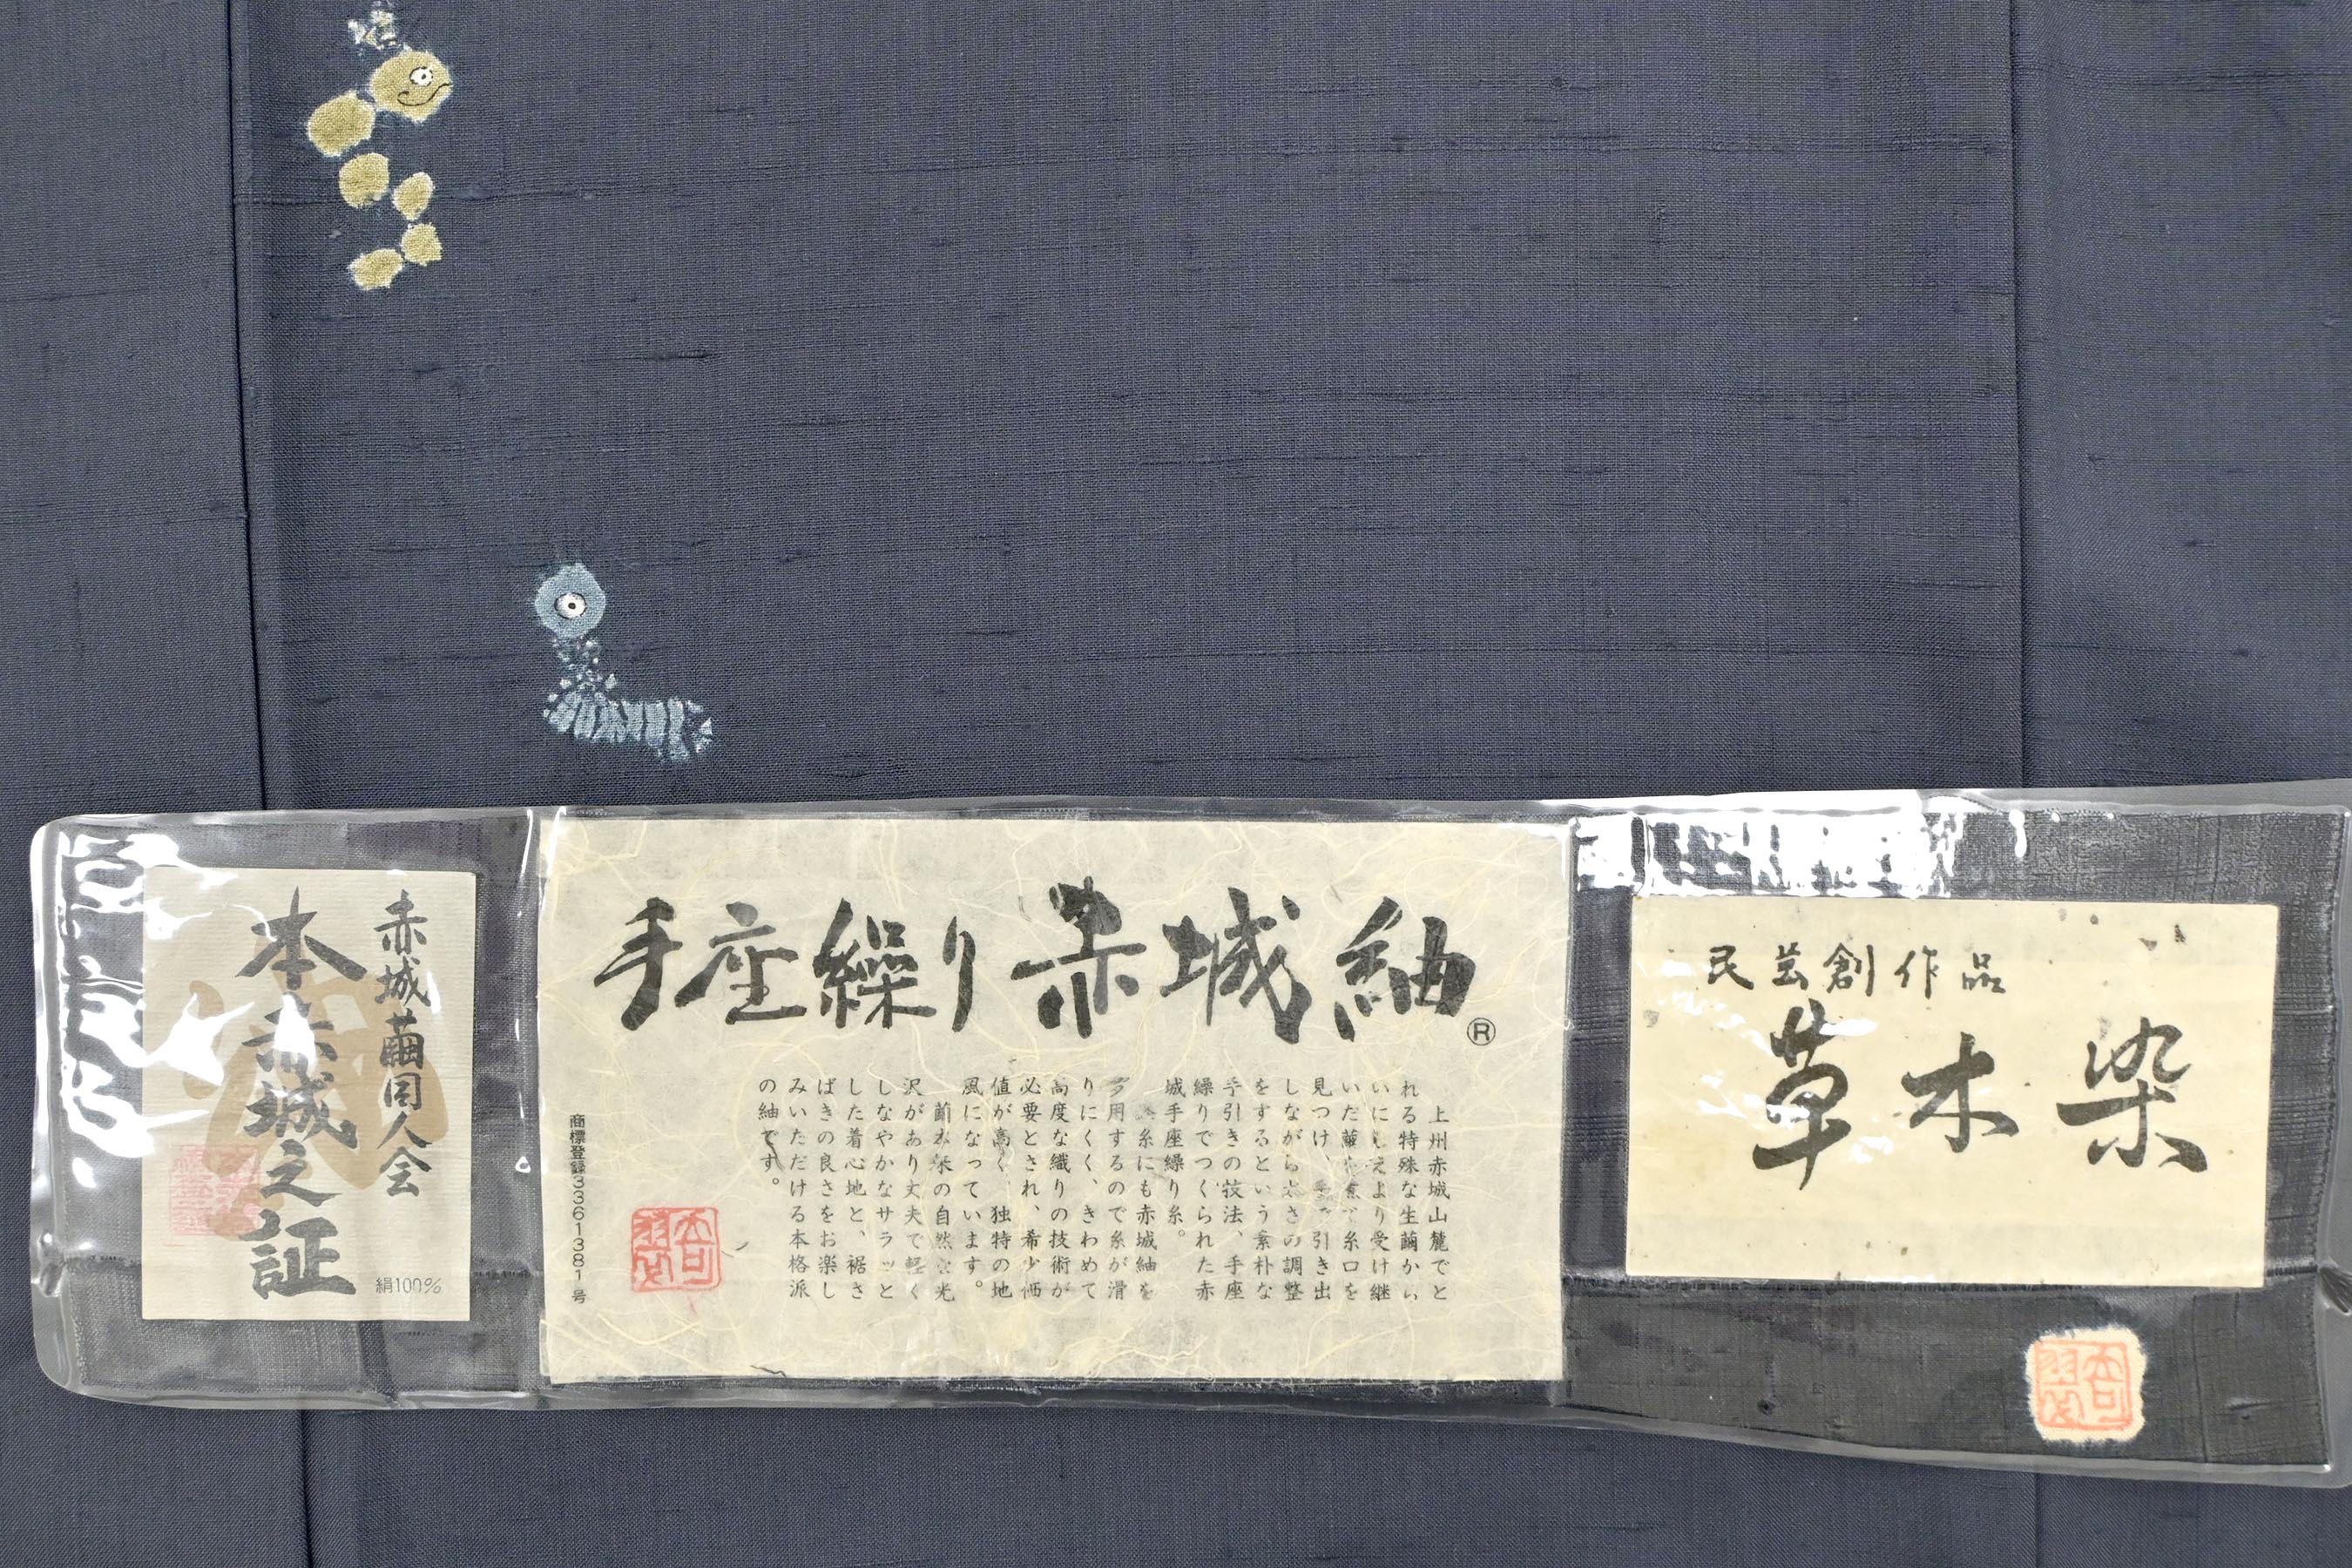 赤城繭同人会
本赤城之証
絹100%
手座繰り赤城紬
®
上州赤城山麓でと
れる特殊な生繭から
いにしえより受け継
いだ繭を煮て糸口を
見つけ、手で引き出
しながら太さの調整
をするという素朴な
手引きの技法、手座
繰りでつくられた赤
城手座繰り糸。
糸にも赤城紬を
多用するので糸が滑
りにくく、きわめて
高度な織りの技術が
必要とされ、希少価
値が高く、独特の地
風になっています。
繭本来の自然な光
沢があり丈夫で軽く
しなやかなサラッと
した着心地と、裾さ
ばきの良さをお楽し
みいただける本格派
の紬です。
商標登録33613381号
民芸創作品
草木染